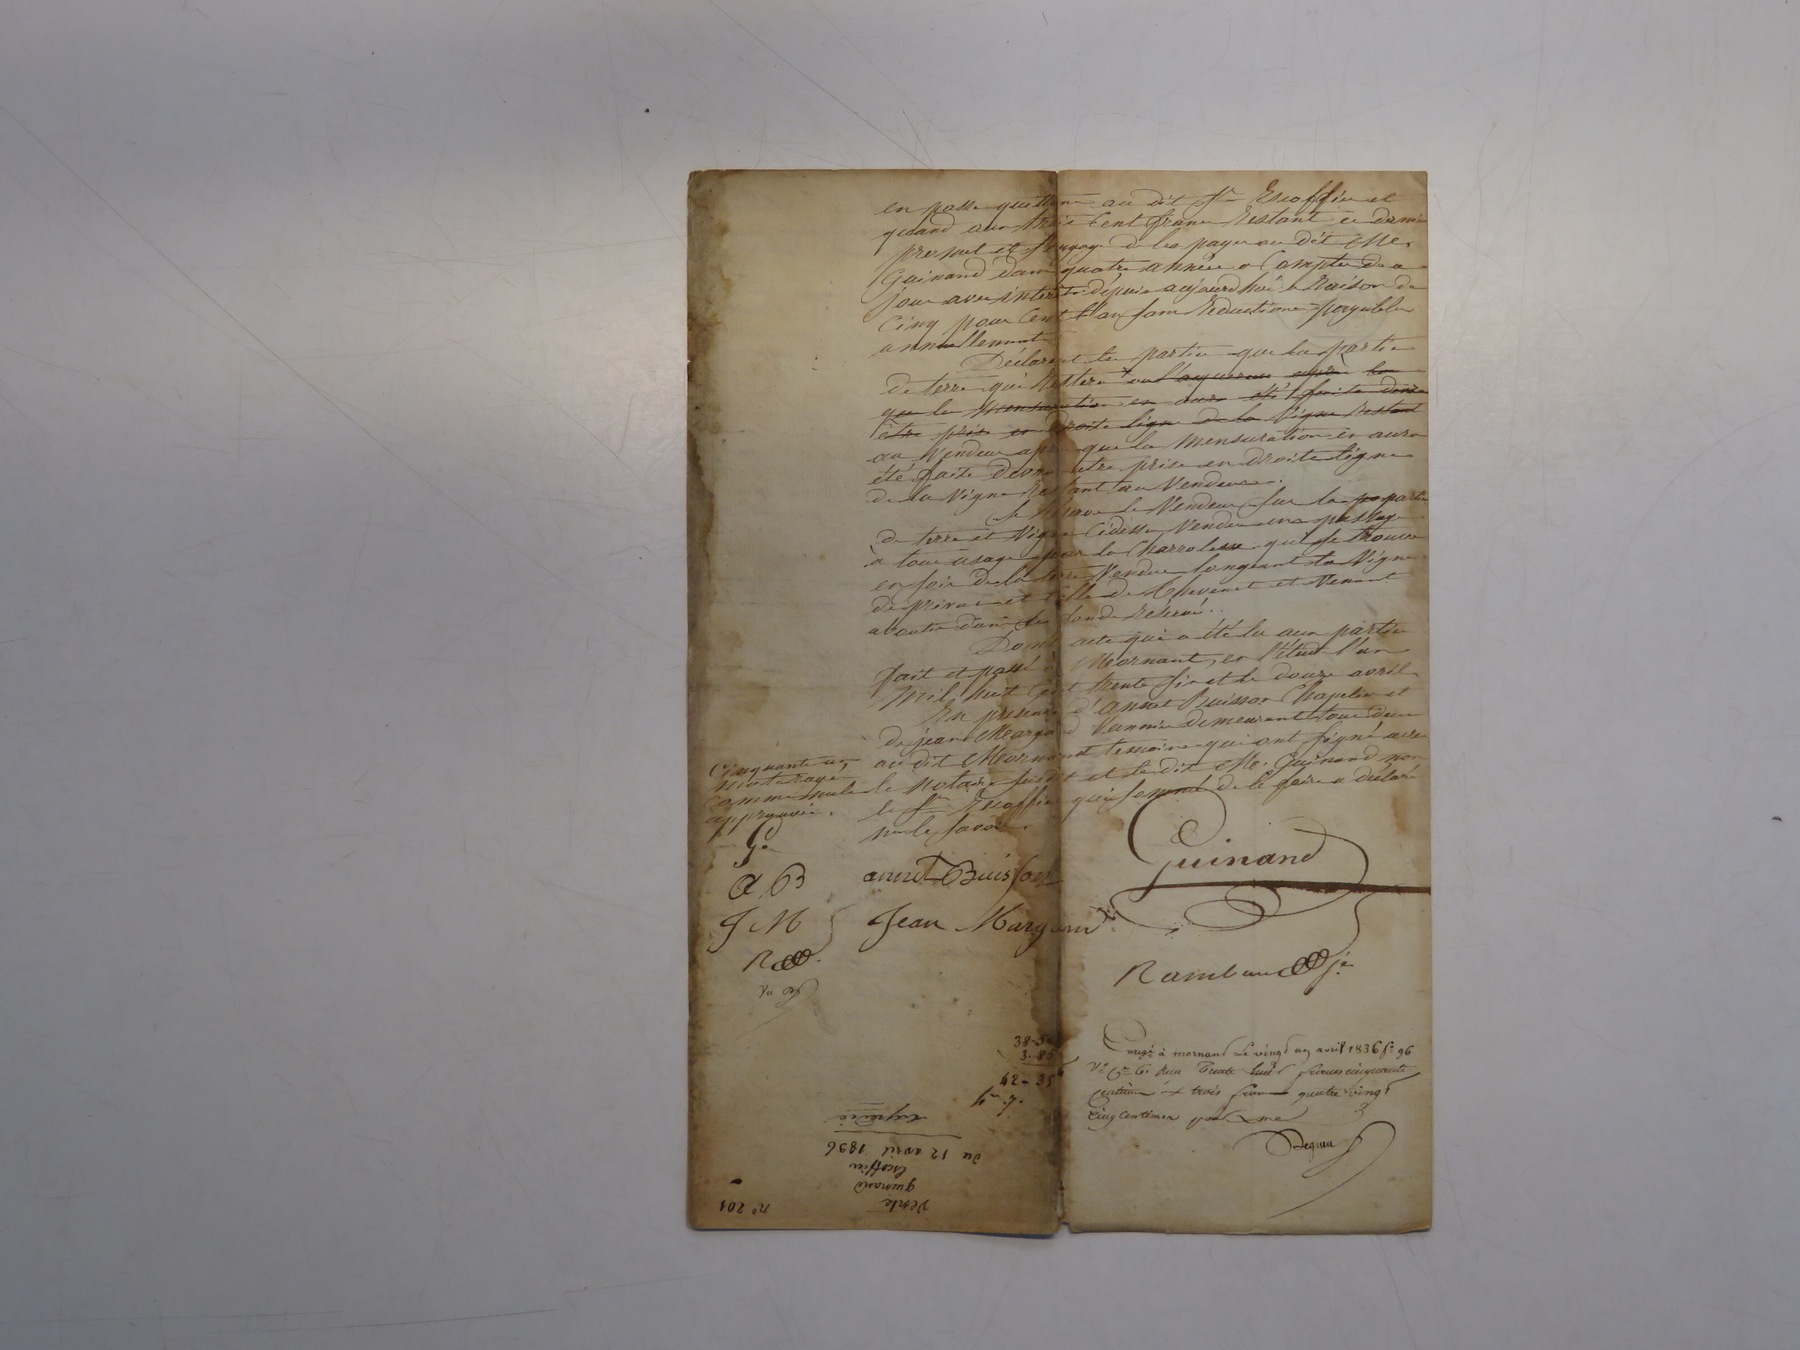 en passe quittance au dit Sr. Escoffier et
quand aux trois Cent franc Restant ce dernier
promet et s'engage de les payer au dit Me.
Guinand dans quatre années a Compter de ce
jour avec intérêts depuis aujourd'hui a Raison de
Cinq pour Cent l'an sans Reductions payables
annuellement
Déclarent les partie que la partie
de terre qui Restera a l'acquereur après
que la mensuration en aura été faite devra
être prise en droite ligne de la Vigne Restant
au Vendeur après que la Mensuration en aura
été faite devra etre prise en droite ligne
de la Vigne Restant au Vendeur.
Se Réserve le Vendeur Sur la partie
de terre et Vigne Cidessu Vendue un passage
à tous usage par la Charrolesse qui se trouve
en soir de la terre Vendue longeant la Vigne
de et celle de Chevenet et Venant
aboutir dans les fonds Réservé..
Dont acte qui a été lu aux partie
fait et passé à Mornant, en l'étude l'an
Mil huit Cent trente six et le douze avril
En presence d'annet Buisson Chapelier et
de jean Margand Vannier demeurant tous deux
au dit Mornant temoins qui ont signé avec
le Notaire susdit et le dit Me. Guinand non
le Sr. Escoffier qui sommé de le faire a déclaré
ne le savoir.
Cinquante un
mots rayé
comme nuls
approuvé.
G.
A B
J M
R
Guinand
annet Buisson
Jean Margand
Rambaud je
38-50
3-85
42-35
Enregé à mornant Le vingt un avril 1836 fo 96
Vo Ce 6. Reçu Trente huit francs cinquante
centimes et trois francs quatre vingt
cinq centimes pour
no 201
Vente
guinand
Escoffier
du 12 avril 1836
Expédié